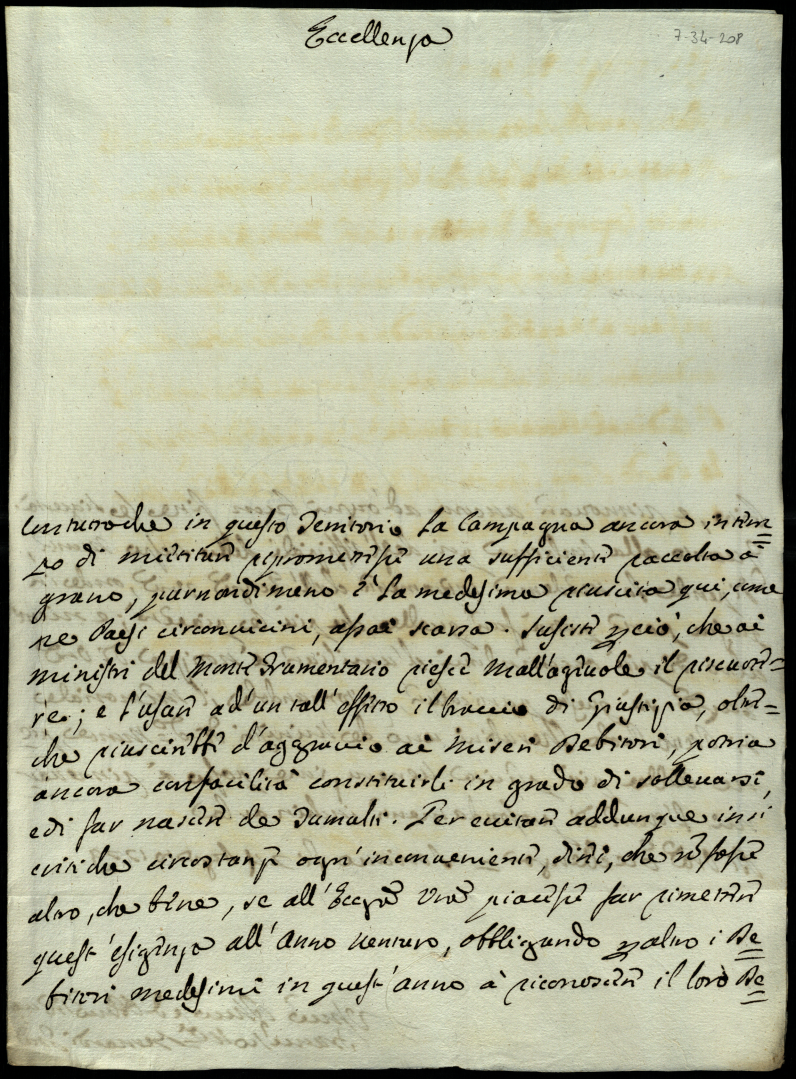 Eccellenza
7-34-208
Contuttoche in questo Territorio la Campagna ancora in tem=
po di mietiture ripromettesse una sufficiente raccolta di
grano, purnondimeno è la medesima riuscita qui, come
ne Paesi circonvicini, assai scarsa. Susiste perciò, che ai
ministri del Monte Frumentario riesce mall'agevole il riscuote=
re; e l'usare ad'un tall'effetto il braccio di Giustizia, oltre=
che riuscirebbe d'aggravio ai miseri Debitori, potria
ancora confacilità constituirli in grado di sollevarsi,
e di far nascere de Tumulti. Per evitare addunque in sì
critiche circostanze ogn'inconveniente, direi, che non fosse
altro, che bene, se all'Eccza Vra piacesse far rimettere
quest'esigenza all'Anno venturo, obbligando peraltro i De=
bitori medesimi in quest'anno à riconoscere il loro De=